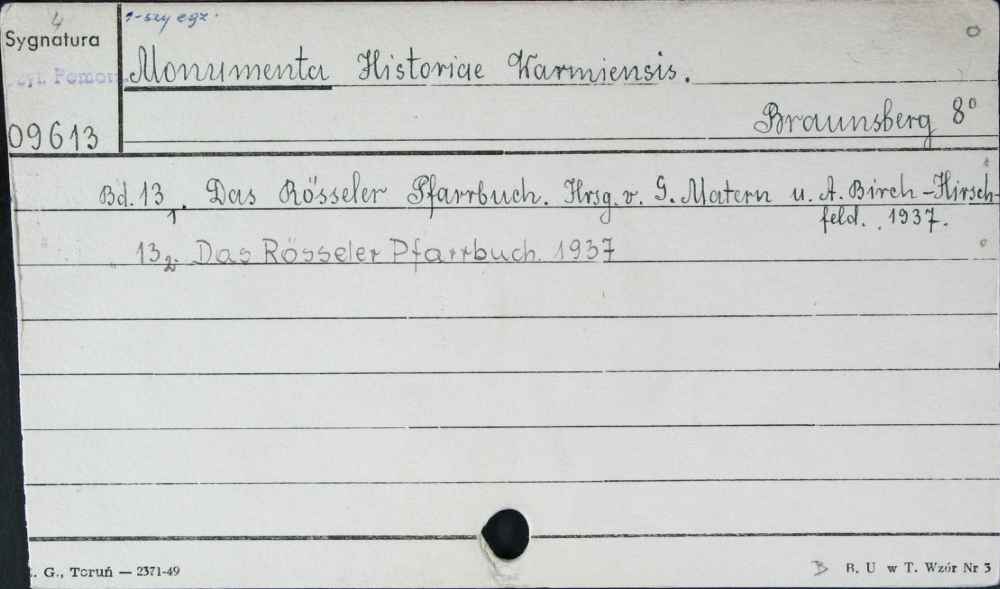 4
1-szy egz.
Sygnatura
Monumenta Historiae Warmiensis.
Braunsberg 8°
09613
Bd. 13₁. Das Rösseler Pfarrbuch. Hrsg. v. G. Matern u. A. Birch-Hirsch-
feld. 1937.
13₂. Das Rösseler Pfarrbuch. 1937
G., Toruń — 2371-49
B
B. U w T. Wzór Nr 3